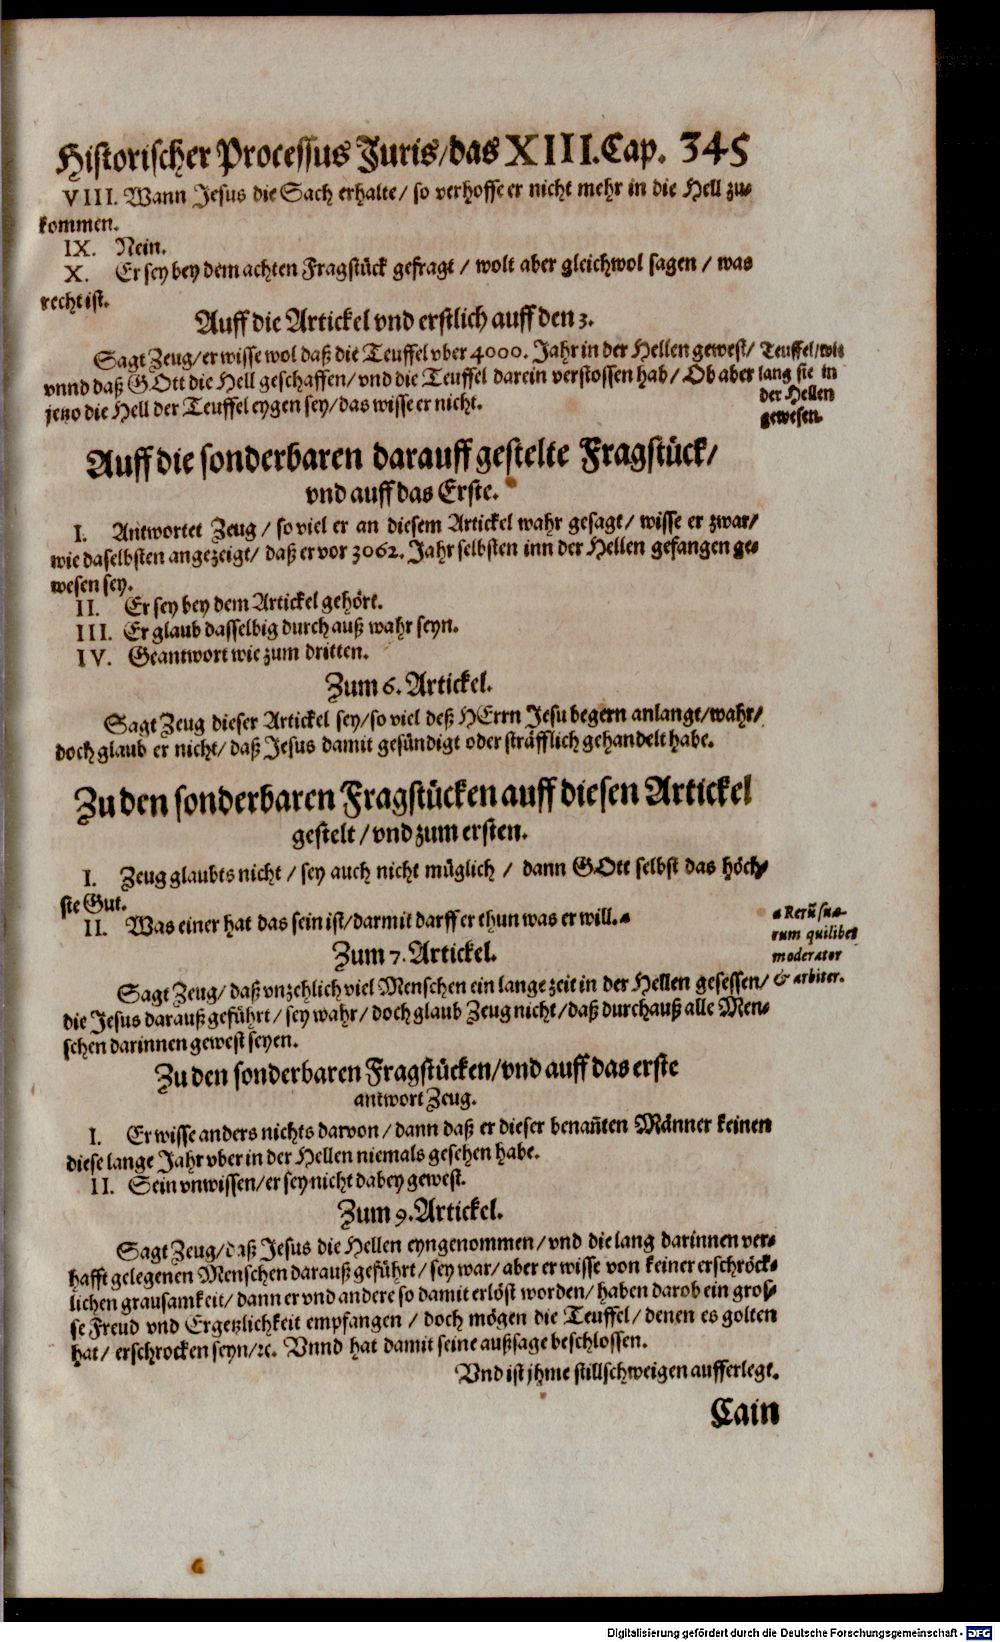 Historischer Processus Juris/das XIII.Cap. 345
VIII. Wann Jesus die Sach erhalte/ so verhoffe er nicht mehr in die Hell zu-
kommen.
IX. Nein.
X. Er sey bey dem achten Fragstück gefragt / wolt aber gleichwol sagen / was
recht ist.
Auff die Artickel vnd erstlich auff den 3.
Sagt Zeug/er wisse wol daß die Teuffel vber 4000. Jahr in der Hellen gewest/
vnnd daß GOtt die Hell geschaffen/ vnd die Teuffel darein verstossen hab/ Ob aber
jetzo die Hell der Teuffel eygen sey/das wisse er nicht.
Teuffel/wie
lang sie in
der Hellen
gewesen.
Auff die sonderbaren darauff gestelte Fragstück/
vnd auff das Erste.
I. Antwortet Zeug / so viel er an diesem Artickel wahr gesagt/ wisse er zwar/
wie daselbsten angezeigt/ daß er vor 3062. Jahr selbsten inn der Hellen gefangen ge-
wesen sey.
II. Er sey bey dem Artickel gehört.
III. Er glaub dasselbig durch auß wahr seyn.
IV. Geantwort wie zum dritten.
Zum 6. Artickel.
Sagt Zeug dieser Artickel sey/so viel deß HErrn Jesu begern anlangt/wahr/
doch glaub er nicht/ daß Jesus damit gesündigt oder sträfflich gehandelt habe.
Zu den sonderbaren Fragstücken auff diesen Artickel
gestelt / vnd zum ersten.
I. Zeug glaubts nicht / sey auch nicht müglich / dann GOtt selbst das höch-
ste Gut.
II. Was einer hat das sein ist/darmit darff er thun was er will. a
a Rerũ sua-
rum quilibet
moderator
& arbiter.
Zum 7. Artickel.
Sagt Zeug/ daß vnzehlich viel Menschen ein lange zeit in der Hellen gesessen/
die Jesus darauß geführt/ sey wahr/ doch glaub Zeug nicht/daß durchauß alle Men-
schen darinnen gewest seyen.
Zu den sonderbaren Fragstücken/vnd auff das erste
antwort Zeug.
I. Er wisse anders nichts darvon/ dann daß er dieser benañten Männer keinen
diese lange Jahr vber in der Hellen niemals gesehen habe.
II. Sein vnwissen/er sey nicht dabey gewest.
Zum 9. Artickel.
Sagt Zeug/daß Jesus die Hellen eyngenommen/ vnd die lang darinnen ver-
hafft gelegenen Menschen darauß geführt/ sey war/ aber er wisse von keiner erschröck-
lichen grausamkeit/ dann er vnd andere so damit erlöst worden/ haben darob ein gros-
se Freud vnd Ergetzlichkeit empfangen / doch mögen die Teuffel/ denen es golten
hat/ erschrocken seyn/ꝛc. Vnnd hat damit seine außsage beschlossen.
Vnd ist jhme stillschweigen aufferlegt.
Cain
Digitalisierung gefördert durch die Deutsche Forschungsgemeinschaft - DFG